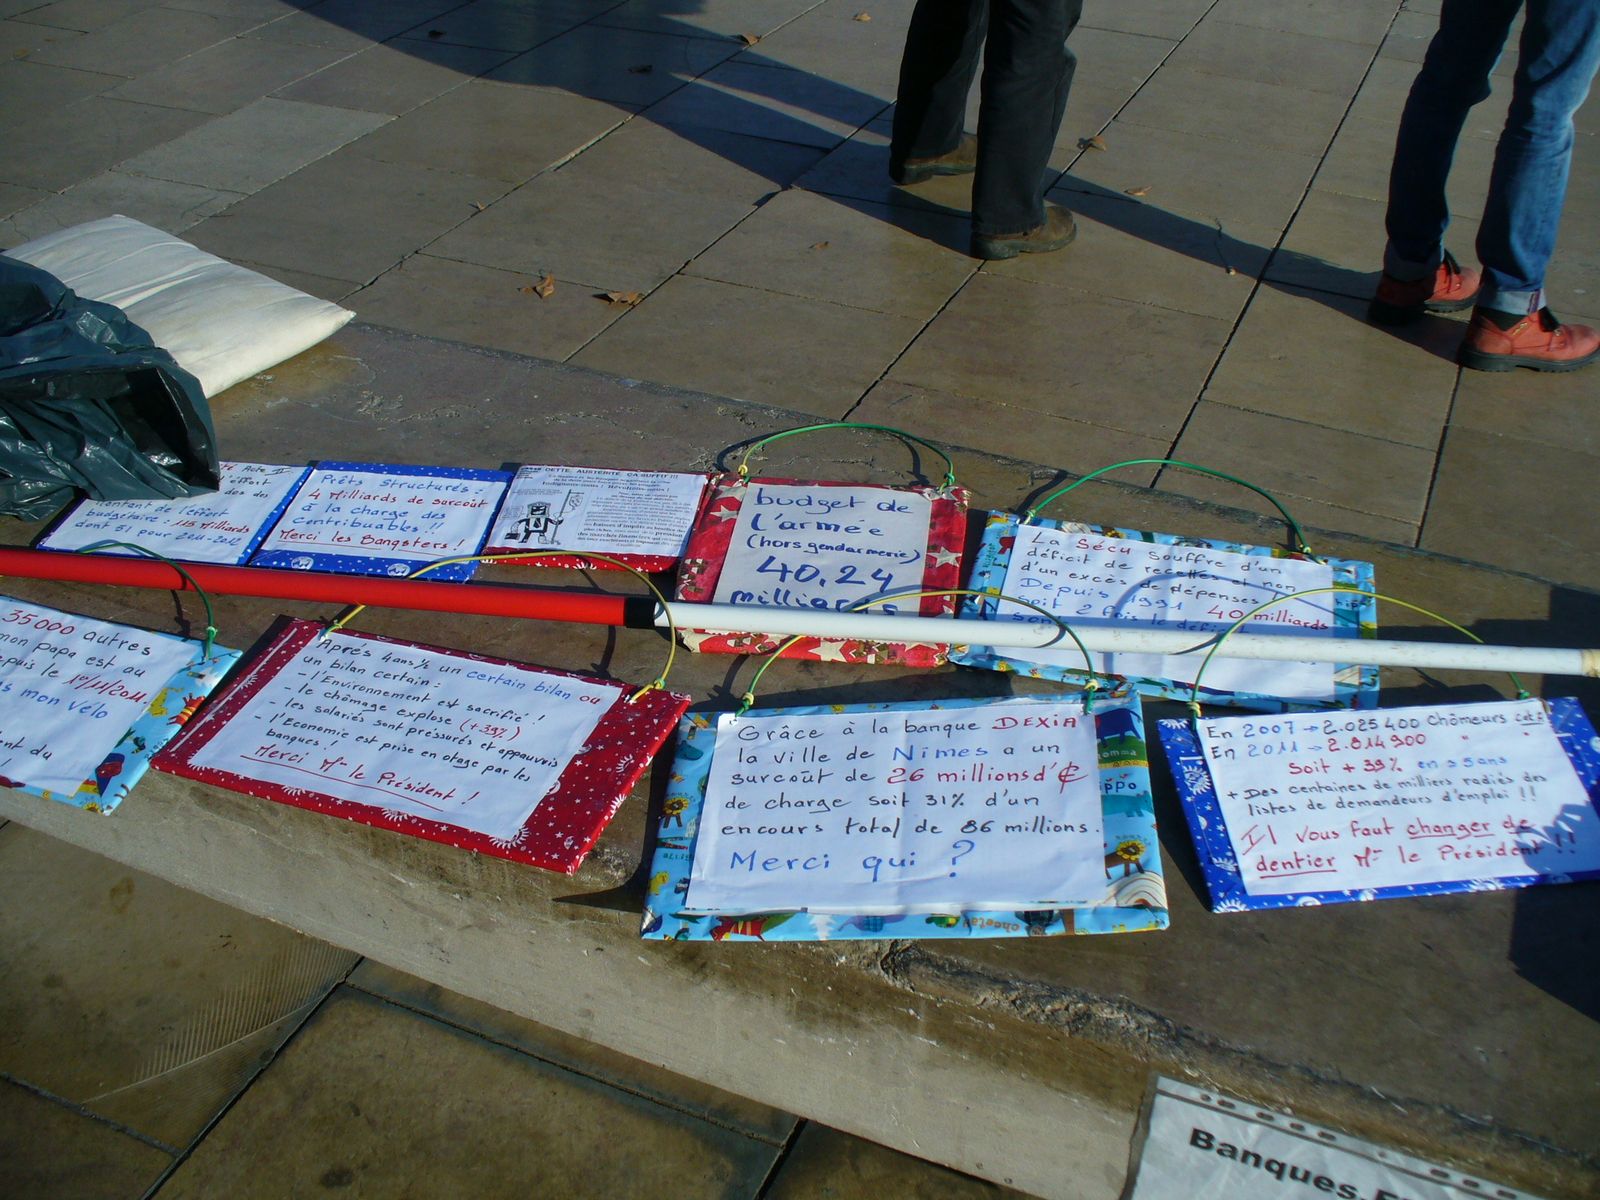 Acte II
l'effort
des des
montant de l'effort
budgétaire : 115 Milliards
dont 51 pour 2011-2012
Prêts Structurés :
4 Milliards de surcoût
à la charge des
contribuables !!
Merci les Bangsters !
DETTE, AUSTERITE ÇA SUFFIT !!!
budget de
l'armée
(hors gendarmerie)
40,24
milliards
La Sécu souffre d'un
déficit de recettes et non
d'un excès de dépenses !
Depuis 1991 40 milliards
soit 2 fois le déficit
35000 autres
mon papa est au
depuis le 1er/11/2011.
mon vélo
Après 4 ans ½ un certain bilan ou
un bilan certain :
- l'Environnement est sacrifié !
- le chômage explose (+39%)
- les salariés sont pressurés et appauvris
- l'Economie est prise en otage par les
banques !
Merci Mr le Président !
Grâce à la banque DEXIA
la ville de Nîmes a un
surcoût de 26 millions d'€
de charge soit 31% d'un
encours total de 86 millions.
Merci qui ?
En 2007 → 2.025400 Chômeurs cat.
En 2011 → 2.814900 " "
Soit + 39% en 5 ans
+ Des centaines de milliers radiés des
listes de demandeurs d'emploi !!
Il vous faut changer de
dentier Mr le Président !!
Banques,